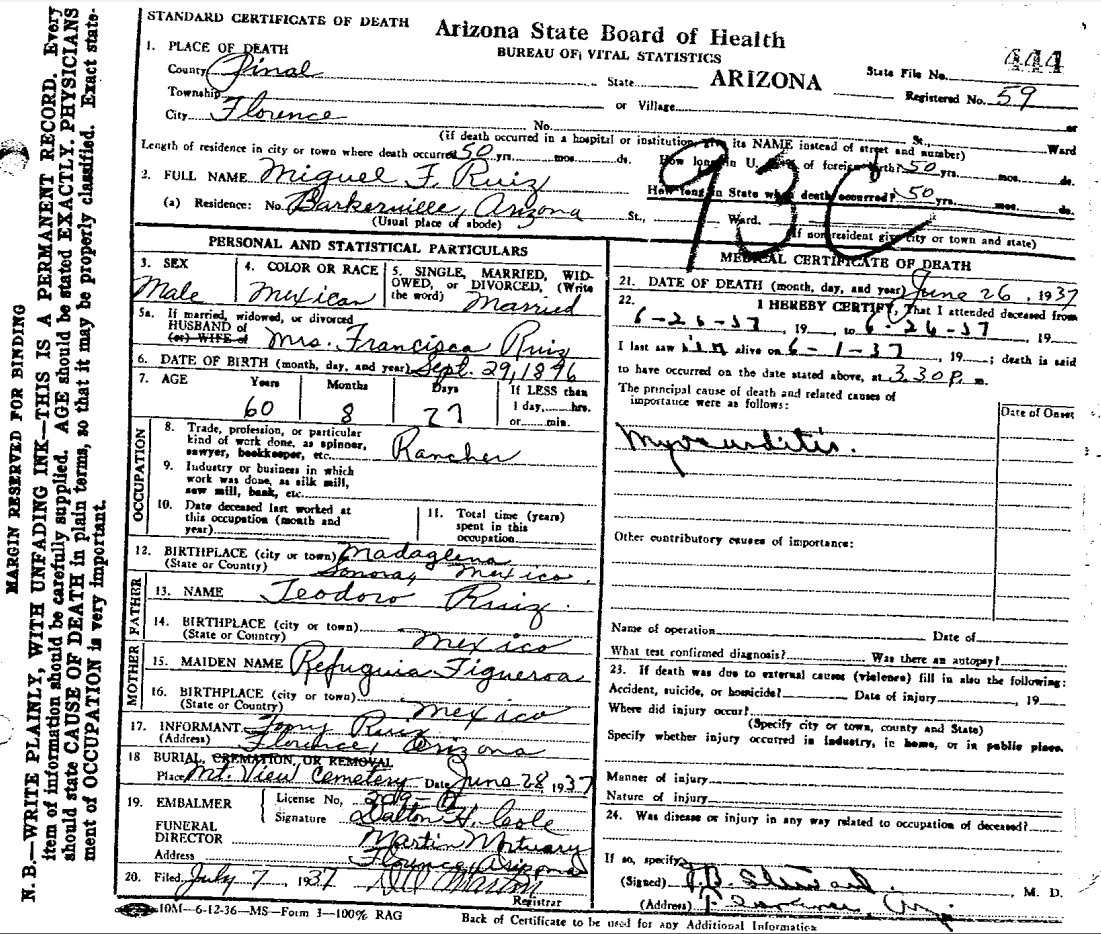 MARGIN RESERVED FOR BINDING
N. B.—WRITE PLAINLY, WITH UNFADING INK—THIS IS A PERMANENT RECORD. Every
item of information should be carefully supplied. AGE should be stated EXACTLY. PHYSICIANS
should state CAUSE OF DEATH in plain terms, so that it may be properly classified. Exact state-
ment of OCCUPATION is very important.
STANDARD CERTIFICATE OF DEATH
Arizona State Board of Health
BUREAU OF VITAL STATISTICS
444
State File No.
1. PLACE OF DEATH
County Pinal State ARIZONA Registered No. 59
Township or Village or
City Florence No. St., Ward
(If death occurred in a hospital or institution, give its NAME instead of street and number)
Length of residence in city or town where death occurred 50 yrs. mos. ds. How long in U. S. if of foreign birth? 50 yrs. mos. ds.
2. FULL NAME Miguel F. Ruiz How long in State when death occurred? 50 yrs. mos. ds.
(a) Residence: No. Barkerville, Arizona St., Ward.
(Usual place of abode) (If nonresident give city or town and state)
93C
PERSONAL AND STATISTICAL PARTICULARS
3. SEX Male
4. COLOR OR RACE Mexican
5. SINGLE, MARRIED, WID-
OWED, or DIVORCED, (Write
the word) Married
5a. If married, widowed, or divorced
HUSBAND of
(or) WIFE of Mrs. Francisca Ruiz
6. DATE OF BIRTH (month, day, and year) Sept. 29, 1876
7. AGE Years Months Days If LESS than
60 8 27 1 day, hrs.
or min.
OCCUPATION
8. Trade, profession, or particular
kind of work done, as spinner,
sawyer, bookkeeper, etc. Rancher
9. Industry or business in which
work was done, as silk mill,
saw mill, bank, etc.
10. Date deceased last worked at
this occupation (month and
year)
11. Total time (years)
spent in this
occupation
12. BIRTHPLACE (city or town) Madaglena
(State or Country) Sonora, Mexico.
FATHER
13. NAME Teodoro Ruiz.
14. BIRTHPLACE (city or town)
(State or Country) Mexico
MOTHER
15. MAIDEN NAME Refuguia Figueroa
16. BIRTHPLACE (city or town)
(State or Country) Mexico
17. INFORMANT Tony Ruiz
(Address) Florence, Arizona
18 BURIAL, CREMATION, OR REMOVAL
Place Mt. View Cemetery Date June 28, 1937
19. EMBALMER License No,
Signature Dalton H. Cole
FUNERAL
DIRECTOR Martin Mortuary
Address Florence, Arizona
20. Filed July 7, 1937
Registrar
MEDICAL CERTIFICATE OF DEATH
21. DATE OF DEATH (month, day, and year) June 26, 1937
22. I HEREBY CERTIFY, That I attended deceased from
6-26-37, 19 to 6-26-37, 19
I last saw him alive on 6-1-37, 19 ; death is said
to have occurred on the date stated above, at 3.30 P. m.
The principal cause of death and related causes of
importance were as follows:
Date of Onset
Myocarditis.
Other contributory causes of importance:
Name of operation Date of
What test confirmed diagnosis? Was there an autopsy?
23. If death was due to external causes (violence) fill in also the following:
Accident, suicide, or homicide? Date of injury , 19
Where did injury occur?
(Specify city or town, county and State)
Specify whether injury occurred in industry, in home, or in public place.
Manner of injury
Nature of injury
24. Was disease or injury in any way related to occupation of deceased?
If so, specify
(Signed) , M. D.
(Address) Florence, Ariz.
10M—6-12-36—MS—Form 3—100% RAG
Back of Certificate to be used for any Additional Information